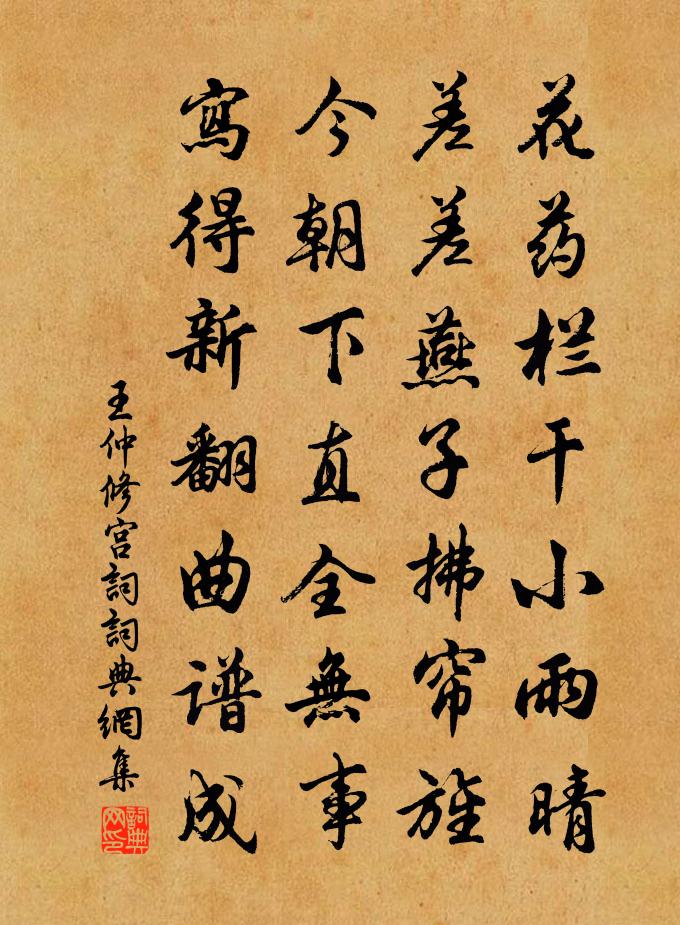 花药栏干小雨晴
差差燕子拂帘旌
今朝下直全無事
寫得新翻曲谱成
王仲修宫詞詞典網集
詞典网印